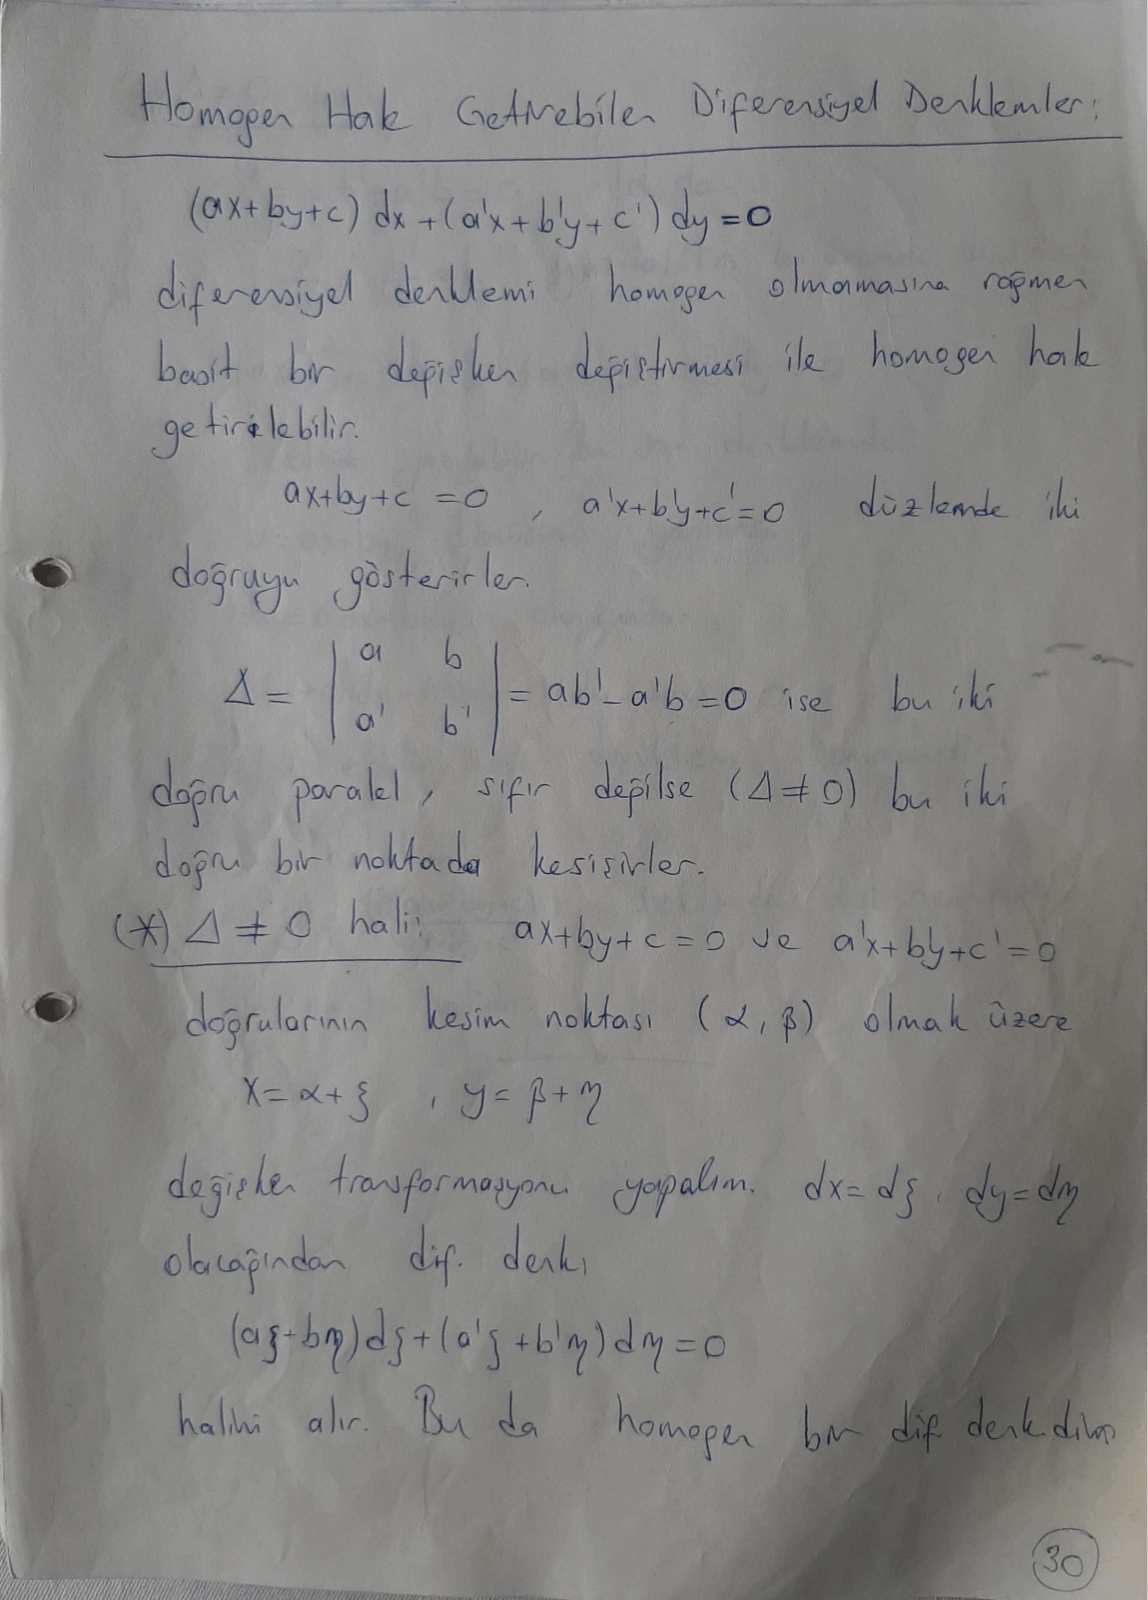 Homogen Hale Getirilebilen Diferensiyel Denklemler:
(ax+by+c) dx + (a'x + b'y + c') dy = 0
diferensiyel denklemi homogen olmamasına rağmen
basit bir değişken değiştirmesi ile homogen hale
getirilebilir.
ax+by+c = 0 , a'x+b'y+c'=0 düzlemde iki
doğruyu gösterirler.
Δ = | a b |
| a' b' | = ab' - a'b = 0 ise bu iki
doğru paralel, sıfır değilse (Δ ≠ 0) bu iki
doğru bir noktada kesişirler.
(*) Δ ≠ 0 hali: ax+by+c = 0 ve a'x+b'y+c' = 0
doğrularının kesim noktası (α, β) olmak üzere
x = α + ξ , y = β + η
değişken transformasyonu yapalım. dx = dξ, dy = dη
olacağından dif. denk.
(aξ+bη)dξ+(a'ξ+b'η)dη = 0
halini alır. Bu da homogen bir dif denkdir.
30